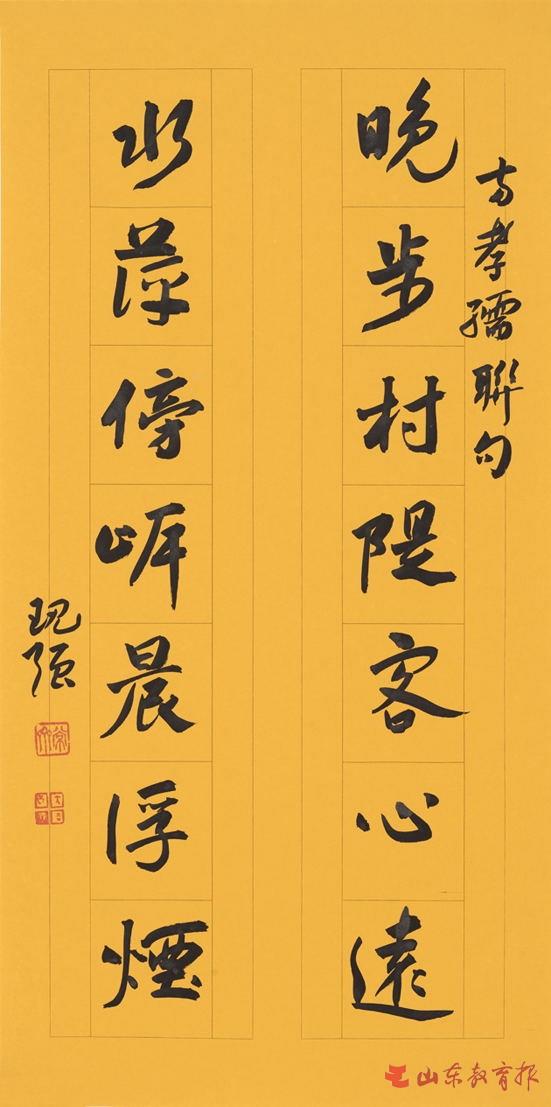 方孝孺聯句
晚步村隄客心遠
水萍傍岸晨浮煙
强
山东教育报